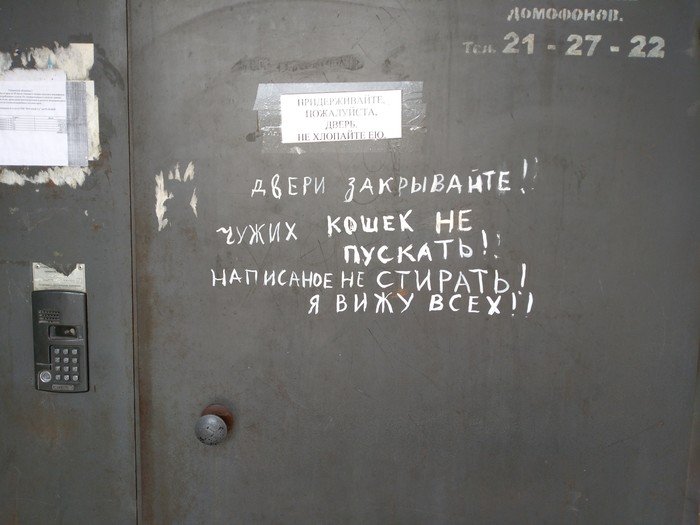 ДОМОФОНОВ.
Тел. 21-27-22
ПРИДЕРЖИВАЙТЕ,
ПОЖАЛУЙСТА,
ДВЕРЬ,
НЕ ХЛОПАЙТЕ ЕЮ.
ДВЕРИ ЗАКРЫВАЙТЕ!!
ЧУЖИХ КОШЕК НЕ
ПУСКАТЬ!!
НАПИСАНОЕ НЕ СТИРАТЬ!
Я ВИЖУ ВСЕХ!!